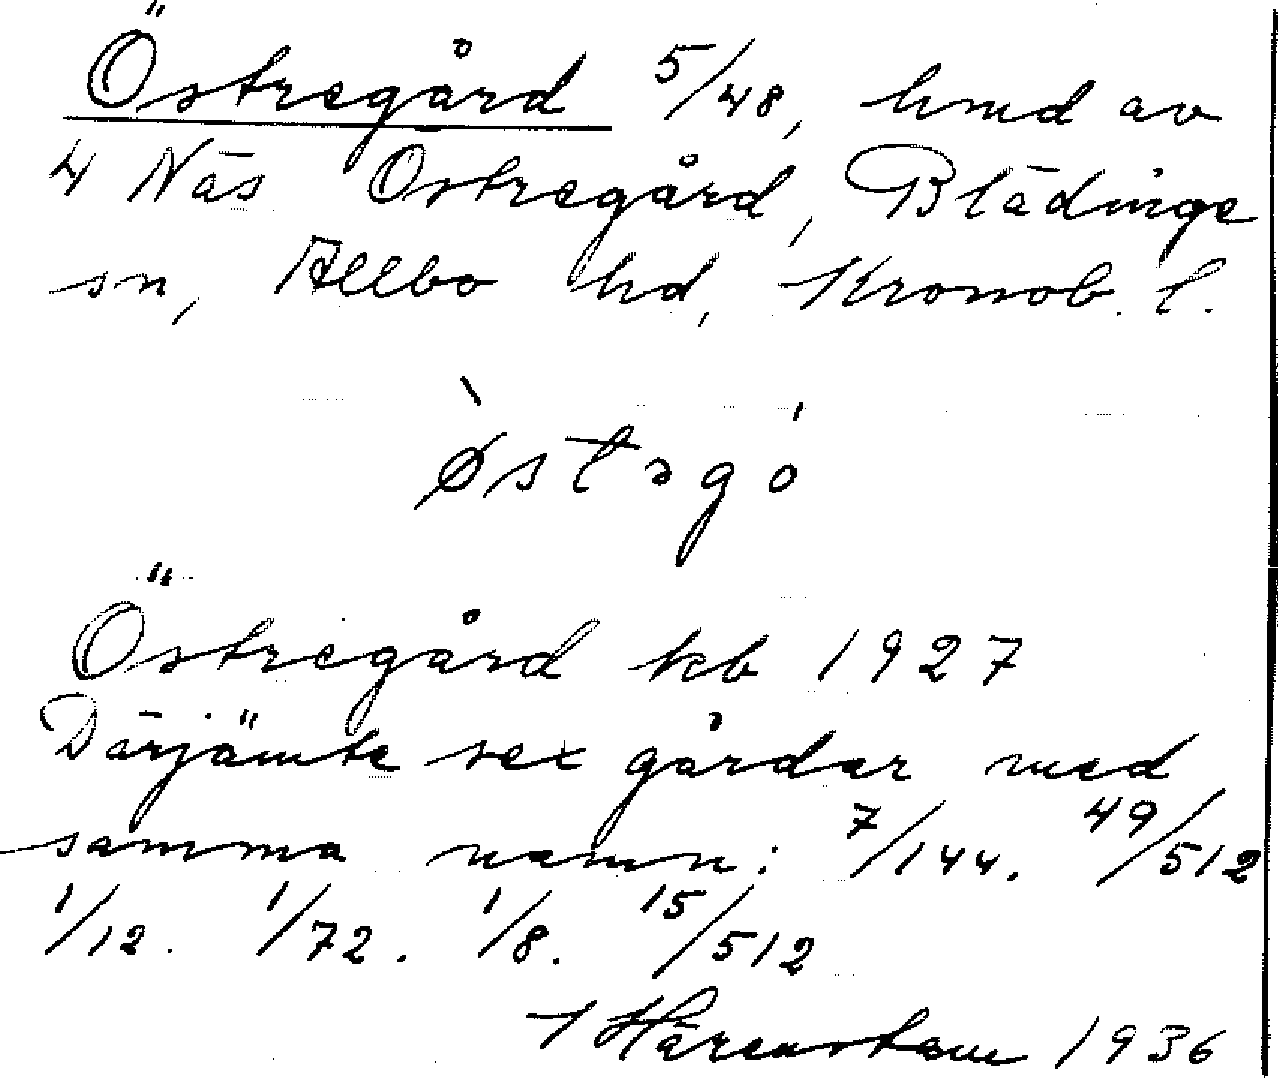 Östregård 5/48, hmd av
4 Näs Östregård, Blädinge
sn, Allbo hd, Kronob. l.
`østəgó
Östregård kb 1927
Därjämte sex gårdar med
samma namn: 7/144. 49/512
1/12. 1/72. 1/8. 15/512
Härenstam 1936